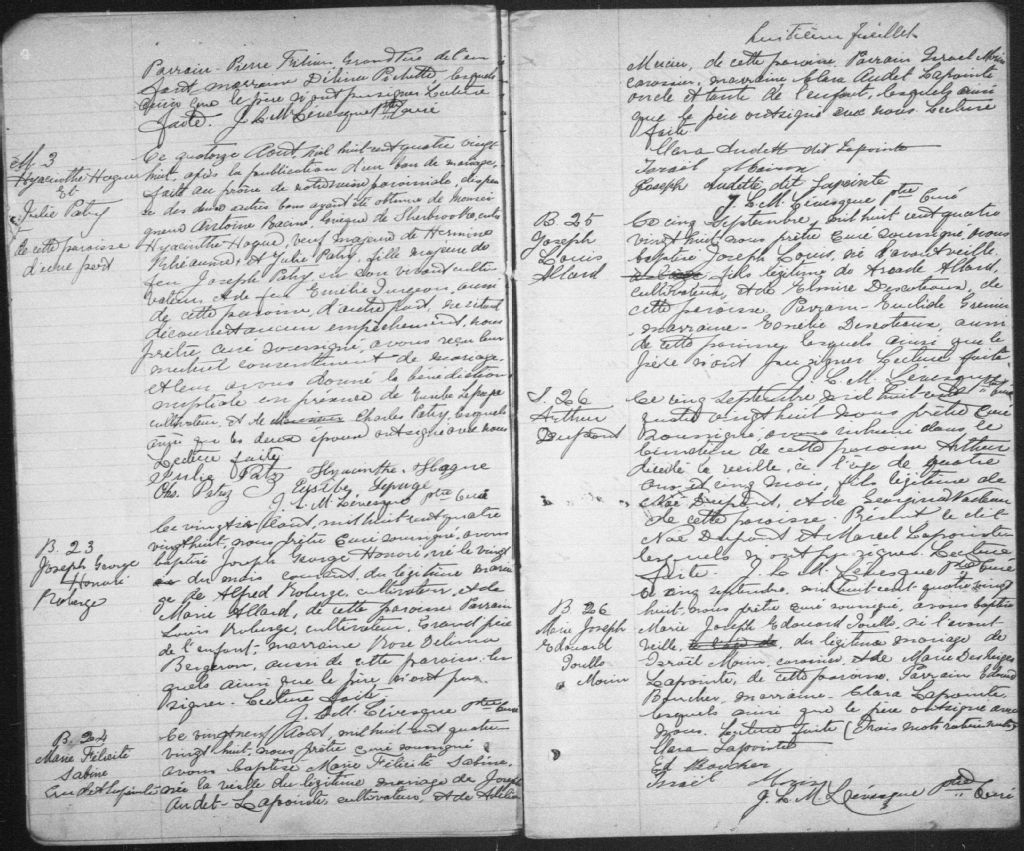 Parrain Pierre Grand Père de l'en
fant marraine Pichette, lesquels
ainsi que le père n'ont pu signer. Lecture
faite. J. L. M. Lévesque Ptre Curé
M. 3
Hyacinthe Hogue
Et
Julie Patry
de cette paroisse
d'une part
Ce quatorze Août, mil huit cent quatre vingt
huit, après la publication d'un ban de mariage,
faite au prône de notre messe paroissiale, dispen
se des deux autres bans ayant été obtenue de Monsei
gneur Antoine Racine, Evêque de Sherbrooke, entre
Hyacinthe Hogue, veuf majeur de Hermine
et Julie Patry, fille majeure de
feu Joseph Patry en son vivant culti
vateur, et de feu Emélie Turgeon, aussi
de cette paroisse, d'autre part, ne s'étant
découvert aucun empêchement, nous
prêtre curé soussigné, avons reçu leur
mutuel consentement de mariage
et leur avons donné la bénédiction
nuptiale en présence de Eusèbe Lepage
cultivateur, et de Charles Patry, lesquels
ainsi que les deux époux ont signé avec nous
Lecture faite
Julie Patry Hyacinthe Hogue
Chs. Patry Eusèbe Lepage
J. L. M. Lévesque ptre Curé
B. 23
Joseph George
Honoré
Roberge
Ce vingt Août, mil huit cent quatre
vingt huit, nous prêtre Curé soussigné, avons
baptisé Joseph George Honoré, né le vingt
du mois courant, du légitime maria
ge de Alfred Roberge, cultivateur, et de
Marie Allard, de cette paroisse Parrain
Louis Roberge, cultivateur, Grand père
de l'enfant marraine Rose Delima
Bergeron, aussi de cette paroisse, les
quels ainsi que le père n'ont pu
signer. Lecture faite
J. L. M. Lévesque ptre Curé
B. 24
Marie Félicité
Sabine
Audet Lapointe
Ce vingt neuf Août, mil huit cent quatre
vingt huit, nous prêtre curé soussigné
avons baptisé Marie Félicité Sabine,
née la veille du légitime mariage de Joseph
Audet-Lapointe, cultivateur, et de
huitième feuillet
de cette paroisse, Parrain Israël Morin
marraine Clara Audet Lapointe
oncle et tante de l'enfant, lesquels ainsi
que le père ont signé avec nous Lecture
faite
Clara Audett dit Lapointe
Israël Morin
Joseph Audette dit Lapointe
J. L. M. Lévesque Ptre Curé
B. 25
Joseph
Louis
Allard
Ce cinq Septembre, mil huit cent quatre
vingt huit, nous prêtre Curé soussigné, avons
baptisé Joseph Louis, né l'avant veille,
fils légitime de Arcade Allard,
cultivateur, et de Elmire Descoteaux, de
cette paroisse. Parrain Euclide Grenier
marraine Descoteaux, aussi
de cette paroisse lesquels ainsi que le
père n'ont pu signer. Lecture faite.
J. L. M. Lévesque Ptre Curé
S. 26
Arthur
Dupont
Ce cinq septembre mil huit cent
quatre vingt huit nous prêtre Curé
soussigné, avons inhumé dans le
cimetière de cette paroisse Arthur
décédé la veille, à l'age de quatre
ans et cinq mois, fils légitime de
Noé Dupont, et de Georgina Nadeau
de cette paroisse. Présent le dit
Noé Dupont et Marcel Lapointe
lesquels n'ont pu signer. Lecture
faite. J. L. M. Lévesque Ptre Curé
B 26
Marie Joseph
Edouard
Morin
Ce cinq septembre, mil huit cent quatre vingt
huit, nous prêtre curé soussigné, avons baptisé
Marie Joseph Edouard né l'avant
veille, du légitime mariage de
Israël Morin, et de Marie
Lapointe, de cette paroisse. Parrain Edouard
Boucher, marraine Clara Lapointe
lesquels ainsi que le père ont signé avec
nous. Lecture faite (Trois mots nuls)
Clara Lapointe
Ed Boucher
Israël Morin
J. L. M. Lévesque Ptre Curé